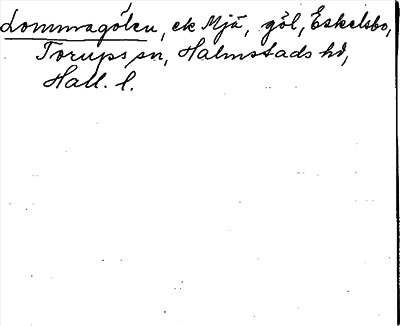 Lommagölen, ek Mjä, göl, Eskelsbo,
Torups sn, Halmstads hd,
Hall. l.